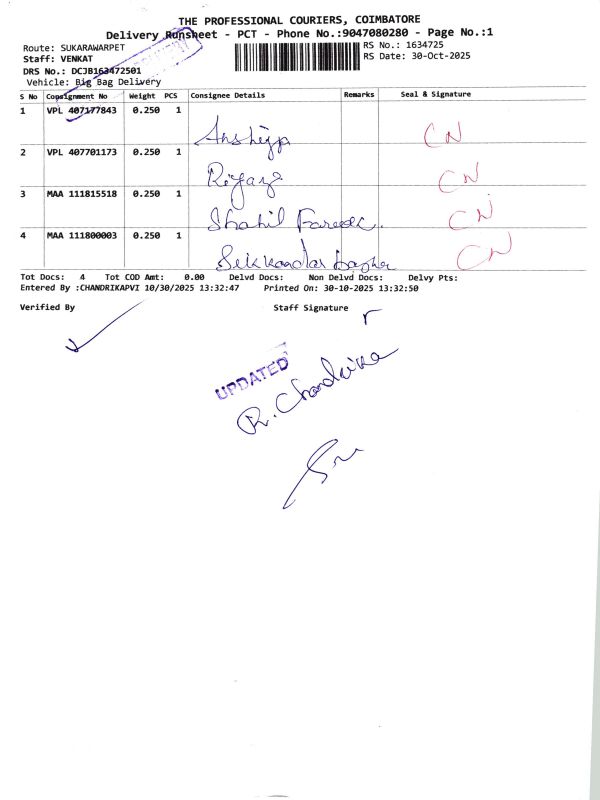 THE PROFESSIONAL COURIERS, COIMBATORE
Delivery Runsheet - PCT - Phone No.:9047080280 - Page No.:1
Route: SUKARAWARPET
RS No.: 1634725
Staff: VENKAT
RS Date: 30-Oct-2025
DRS No.: DCJB163472501
Vehicle: Big Bag Delivery
S No Consignment No Weight PCS Consignee Details Remarks Seal & Signature
1 VPL 407177843 0.250 1 CN
2 VPL 407701173 0.250 1 Riyaz CN
3 MAA 111815518 0.250 1 Shahil Fareek. CN
4 MAA 111800003 0.250 1 CN
Tot Docs: 4 Tot COD Amt: 0.00 Delvd Docs: Non Delvd Docs: Delvy Pts:
Entered By :CHANDRIKAPVI 10/30/2025 13:32:47 Printed On: 30-10-2025 13:32:50
Verified By Staff Signature
UPDATED
R. Chandrika